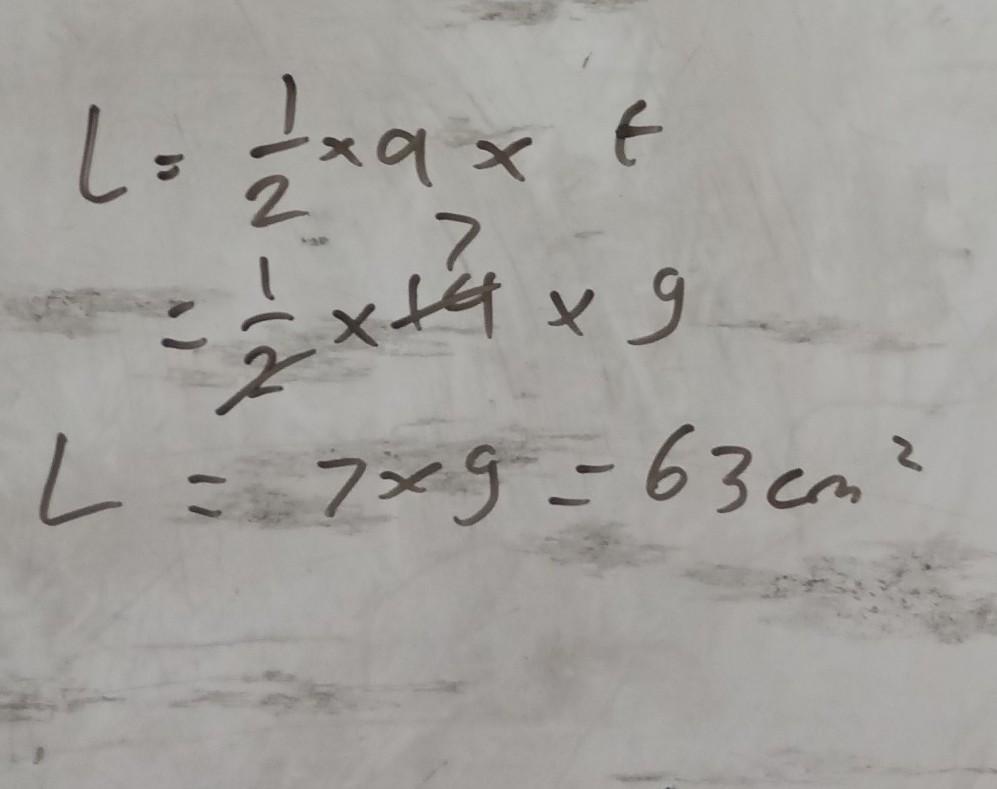 L = 1/2 × a × t
= 1/2 × 14 7 × 9
L = 7 × 9 = 63 cm²